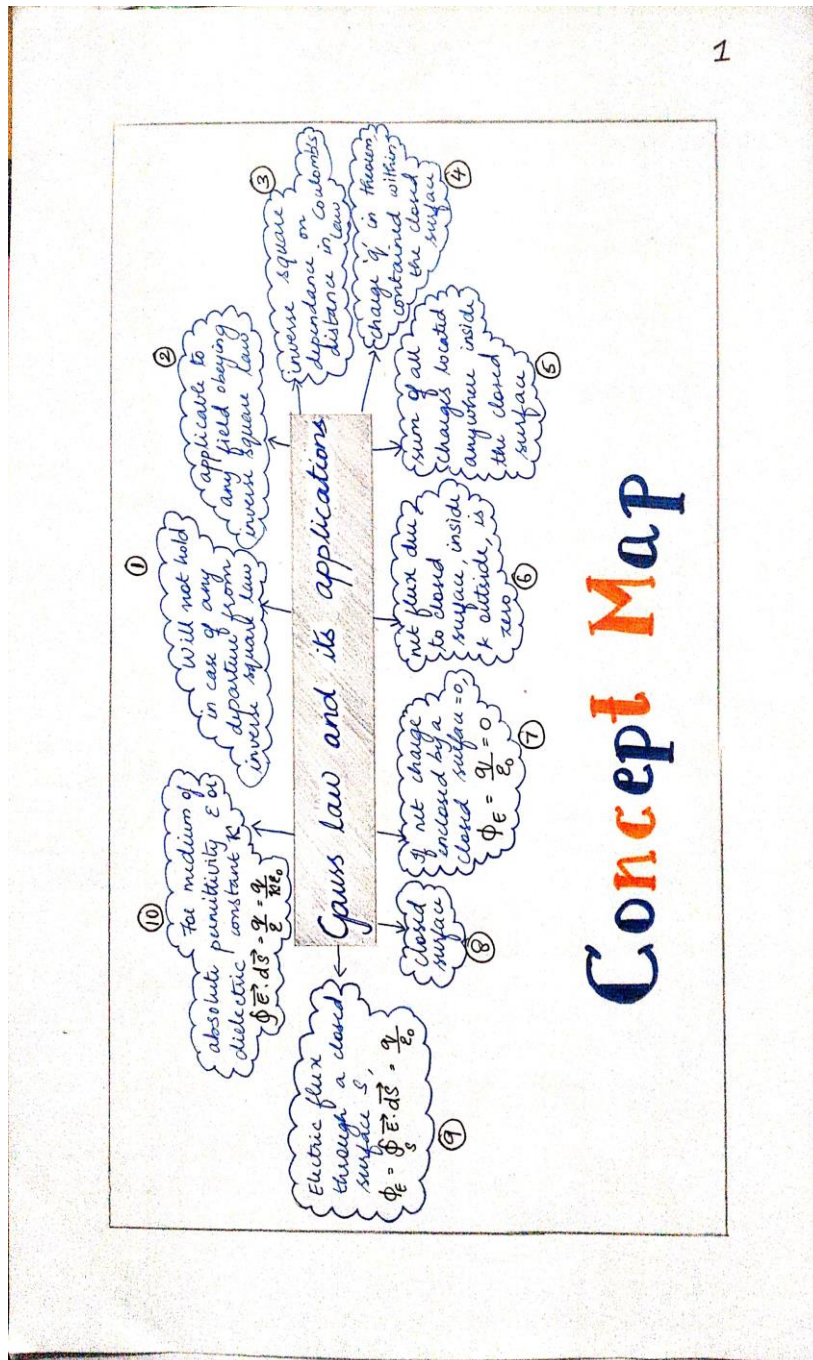 1
Will not hold
in case of any
departure from
inverse square law
①
applicable to
any field obeying
inverse square law
②
inverse square
dependance on
distance in Coulombs
law
③
charge 'q' in theorem,
contained within
the closed
surface
④
sum of all
charges located
anywhere inside
the closed
surface
⑤
net flux due
to closed
surface, inside
& outside, is
zero
⑥
If net charge
enclosed by a
closed surface =0,
ϕE = q/ε₀ = 0
⑦
closed
surface
⑧
Electric flux
through a closed
surface S,
ϕE = ∮S E⃗.dS⃗ = q/ε₀
⑨
For medium of
absolute permittivity ε or
dielectric constant K
∮E⃗.dS⃗ = q/ε = q/Kε₀
⑩
Gauss law and its applications
Concept Map